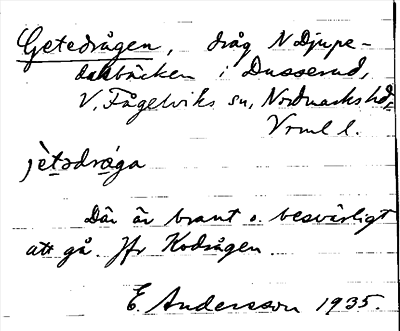 Getedrågen, dråg N Djupe-
dalsbäcken i Dusserud,
V. Fågelviks sn, Nordmarks hd,
Vrml l.
jètədrǫ́ga
Där är brant o. besvärligt
att gå. Jfr Kodrågen.
E. Andersson 1935.